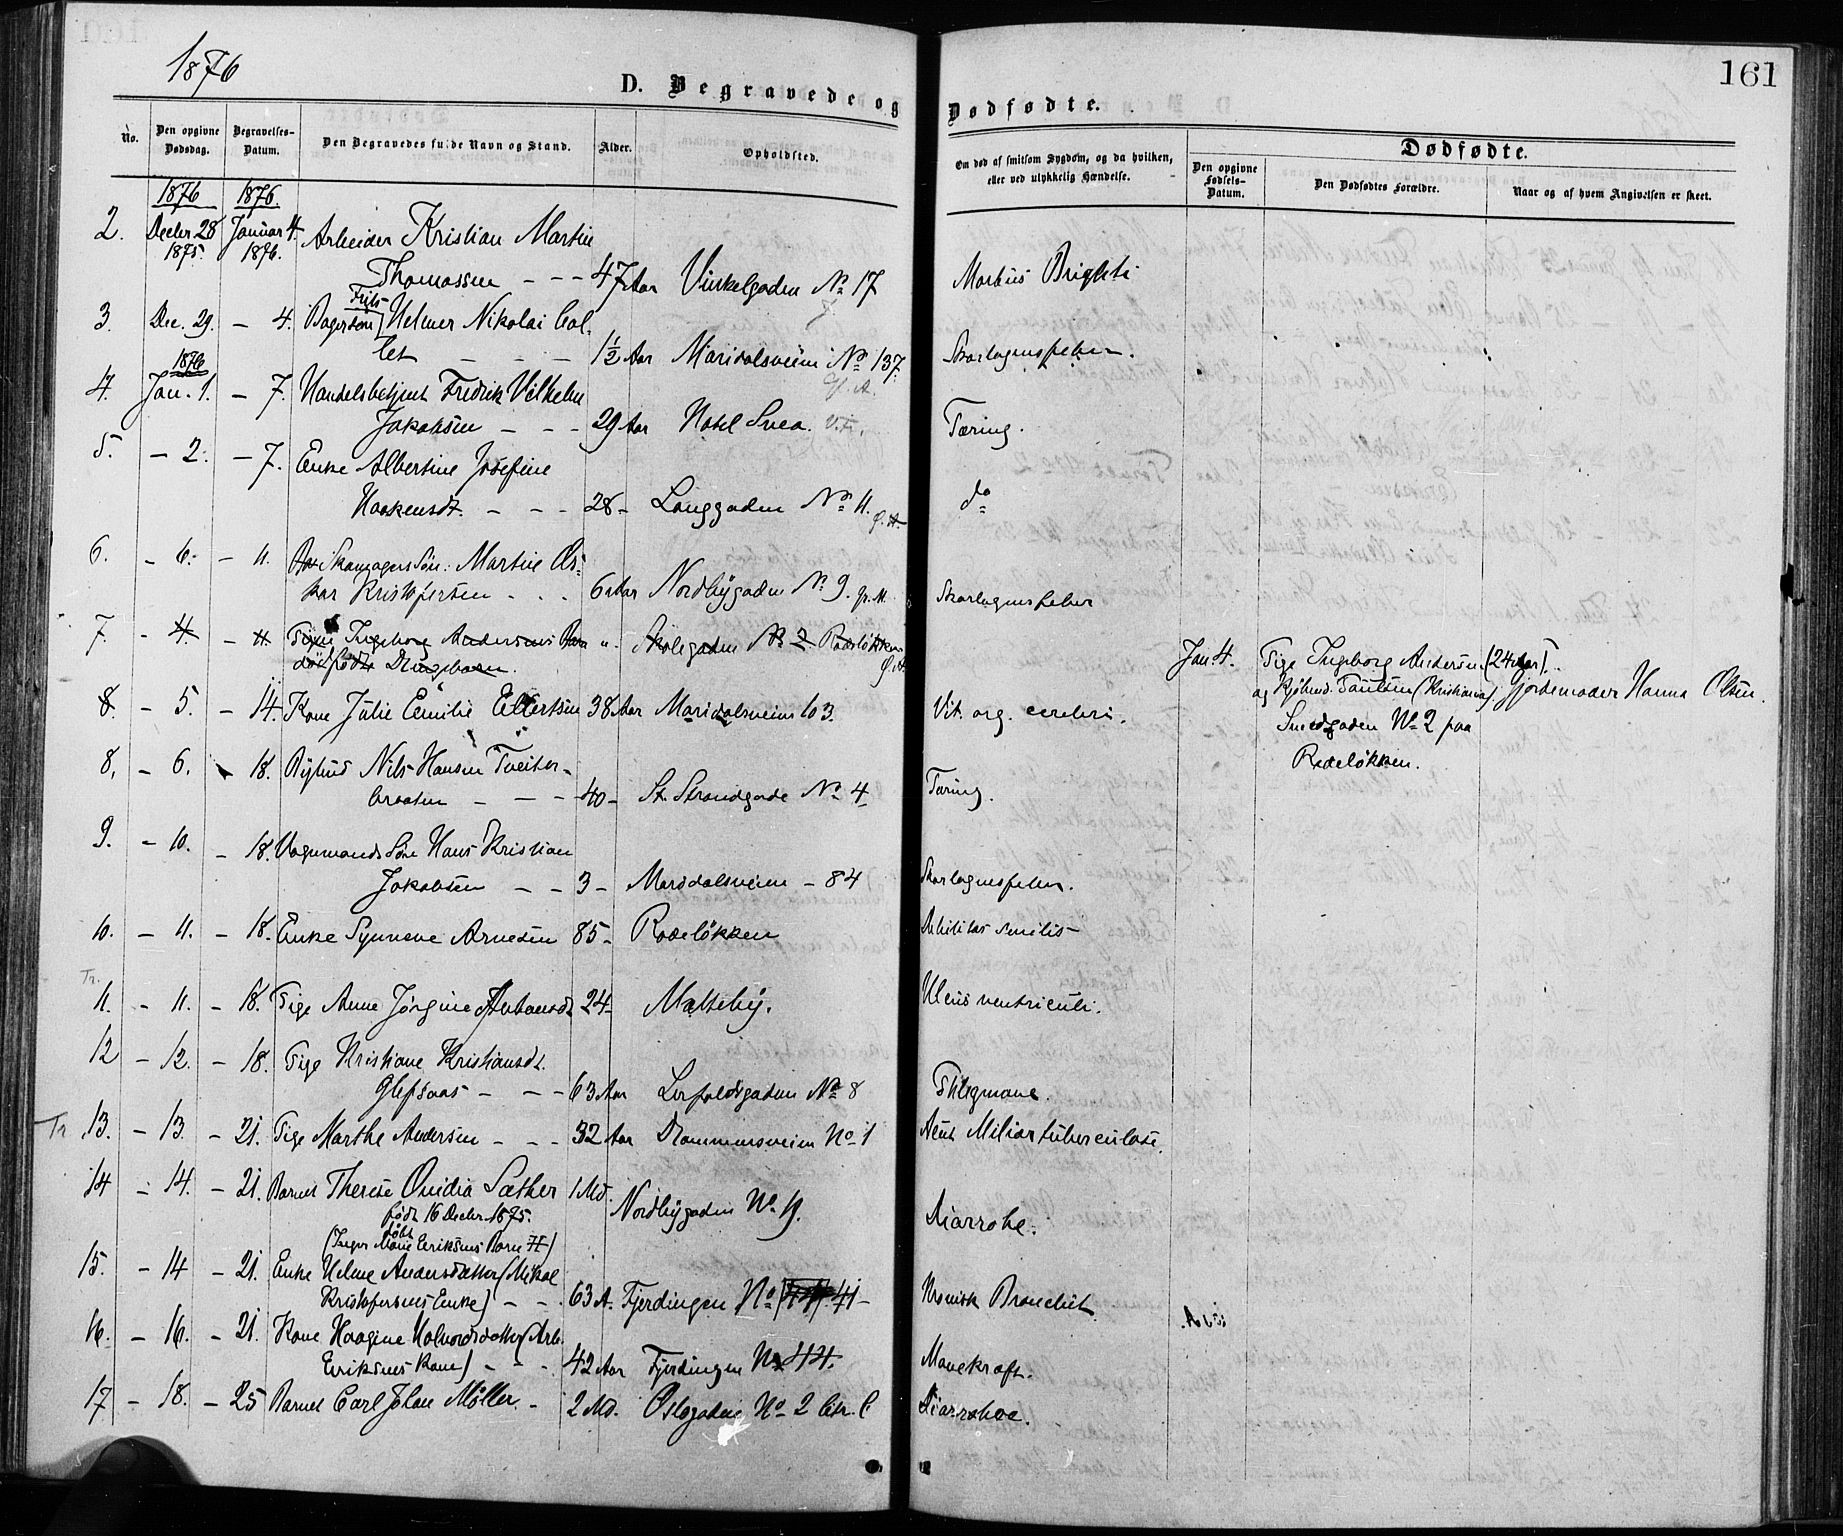 1876
161
D. Begravede og Dødfødte.
No.
Den opgivne Dødsdag.
Begravelses-Datum.
Den Begravedes fulde Navn og Stand.
Alder.
Opholdsted.
Om død af smitsom Sygdom, og da hvilken, eller ved ulykkelig Hændelse.
Dødfødte.
Den opgivne Fødsels-Datum.
Den Dødfødtes Forældre.
Naar og af hvem Angivelsen er skeet.
1876 1876.
2. Decbr 28 Januar 4. Arbeider Kristian Martin
1875. 1876.
Thomassen - - - 47 Aar Vinkelgaden No 17 Morbus Brighti
Frits
3. Dec. 29. - 4. Bagersøn Helmer Nikolai Col-
let - - - 1½ Aar Maridalsveien No 137. Skarlagensfeber.
1876
4. Jan. 1. - 7. Handelsbetjent Fredrik Vilhelm
Jakobsen - - - 29 Aar Hotel Svea. Tæring.
5. - 2. - 7. Enke Albertine Josefine
Haakensdt. - - - 28 - Langgaden No 11. do
6. - 6. - 11. Skomagers Søn: Martin Os-
kar Kristofersen - - - 6 Aar Nordbygaden No 9. Skarlagensfeber
7. - 4 - 11. Pige Ingeborg Andersens Barn " - Skolegaden No 2 Rodeløkken
dødfødt Drengebarn.
Jan. 4. Pige Ingeborg Andersen (24 Aar)
og Kjøbmd. Paulsen (Kristiania) Gjordemoder Hanna Olsen.
Smedgaden No 2 paa
Rodeløkken.
8. - 5. - 14. Kone Julie Emilie Ellertsen 38 Aar Maridalsveien 103. Vit. org. cerebri.
8. - 6. - 18. Nils Hansen Tveiter-
braaten - - - 40 - St. Strandgade No 4 Tæring.
9. - 10. - 18. Vognmands Søn Hans Kristian
Jakobsen - - 3 - Maridalsveien - 84 Skarlagensfeber.
10. - 11. - 18. Enke Synneve Arnesen 85 - Rodeløkken Debilitas senilis
Tr.
11. - 11. - 18. Pige Anne Jørgine Antonsdt 24 - Malteby. Ulcus ventriculi.
12 - 12. - 18. Pige Kristiane Kristiansdt.
- - - 63 Aar No 8 Phlegmone.
Tr. 13. - 13. - 21. Pige Marthe Andersen - - - 32 Aar Drammensveien No 1 Acut Miliartuberculose.
14 - 14. - 21. Barnet Therese Ovidia Sæther 1 Md. Nordbygaden No 9. Diarrohe.
født 16 Decbr. 1875.
døbt
(Inger Marie Eriksens Barn)
15. - 14 - 21. Enke Helene Andersdatter (Mikal
Kristofersens Enke) - - 63 A. Fjerdingen No 41 - Kronisk Bronchit
16. - 16. - 21. Kone Haagine Halvorsdatter (Arb.
Eriksens Kone) - - - 42 Aar Fjerdingen No 44. Mavekræft.
17 - 18. - 25 Barnet Carl Johan Møller. - 2 Md. Oslogaden No 2 litr. C Diarrohoe.